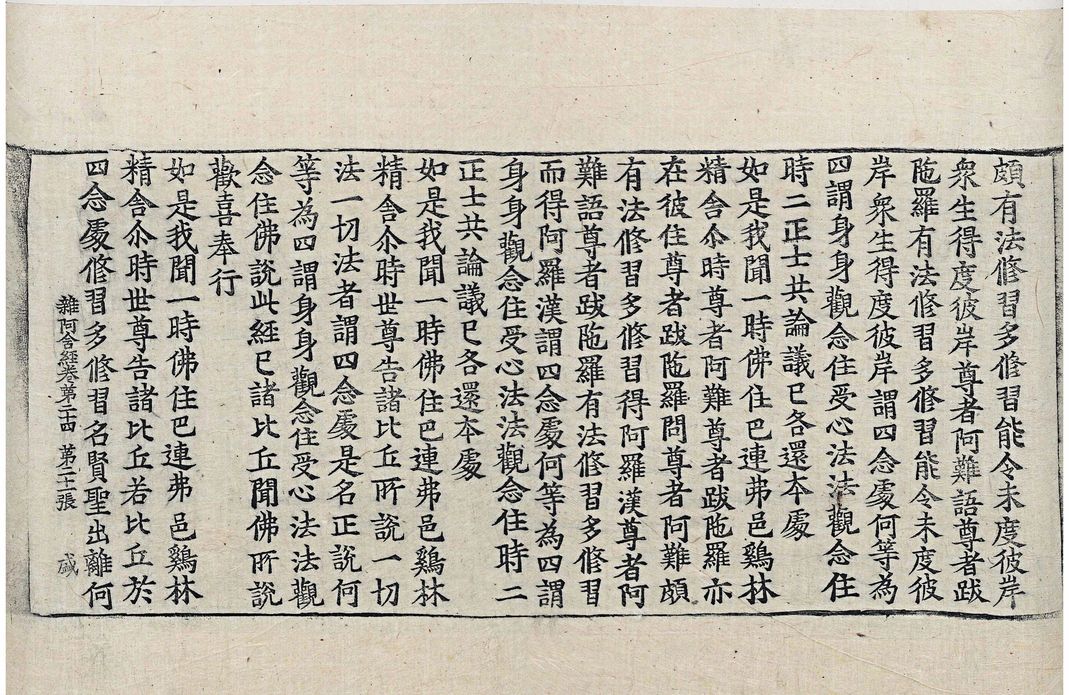 頗有法修習多修習能令未度彼岸
衆生得度彼岸尊者阿難語尊者跋
陁羅有法修習多修習能令未度彼
岸衆生得度彼岸謂四念處何等為
四謂身身觀念住受心法法觀念住
時二正士共論議已各還本處
如是我聞一時佛住巴連弗邑鷄林
精舍尒時尊者阿難尊者跋陁羅亦
在彼住尊者跋陁羅問尊者阿難頗
有法修習多修習得阿羅漢尊者阿
難語尊者跋陁羅有法修習多修習
而得阿羅漢謂四念處何等為四謂
身身觀念住受心法法觀念住時二
正士共論議已各還本處
如是我聞一時佛住巴連弗邑鷄林
精舍尒時世尊告諸比丘所說一切
法一切法者謂四念處是名正說何
等為四謂身身觀念住受心法法觀
念住佛說此經已諸比丘聞佛所說
歡喜奉行
如是我聞一時佛住巴連弗邑鷄林
精舍尒時世尊告諸比丘若比丘於
四念處修習多修習名賢聖出離何
雜阿含經卷第二十四 第二十張 盛